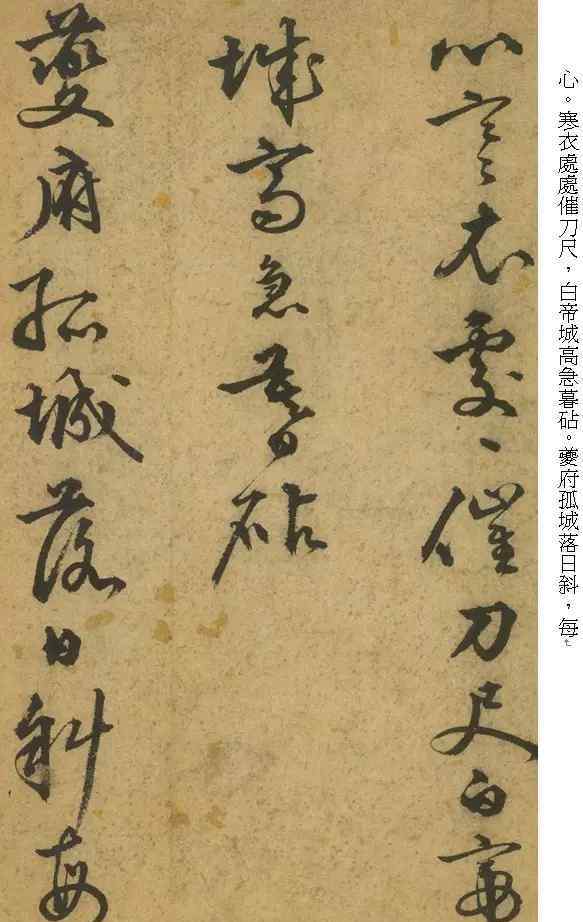 心寒衣處〻催刀尺白帝
城高急暮砧
夔府孤城落日斜每
心。寒衣處處催刀尺，白帝城高急暮砧。夔府孤城落日斜，每